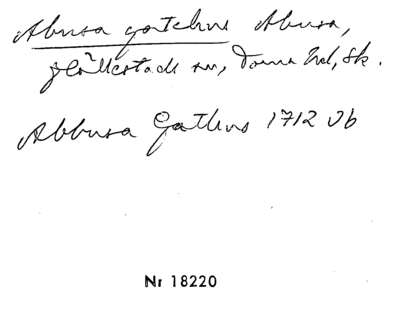 Abusa gatehus Abusa,
Gällerstads sn, Torna hd, Sk.
Abbusa Gathus 1712 Jb
Nr 18220